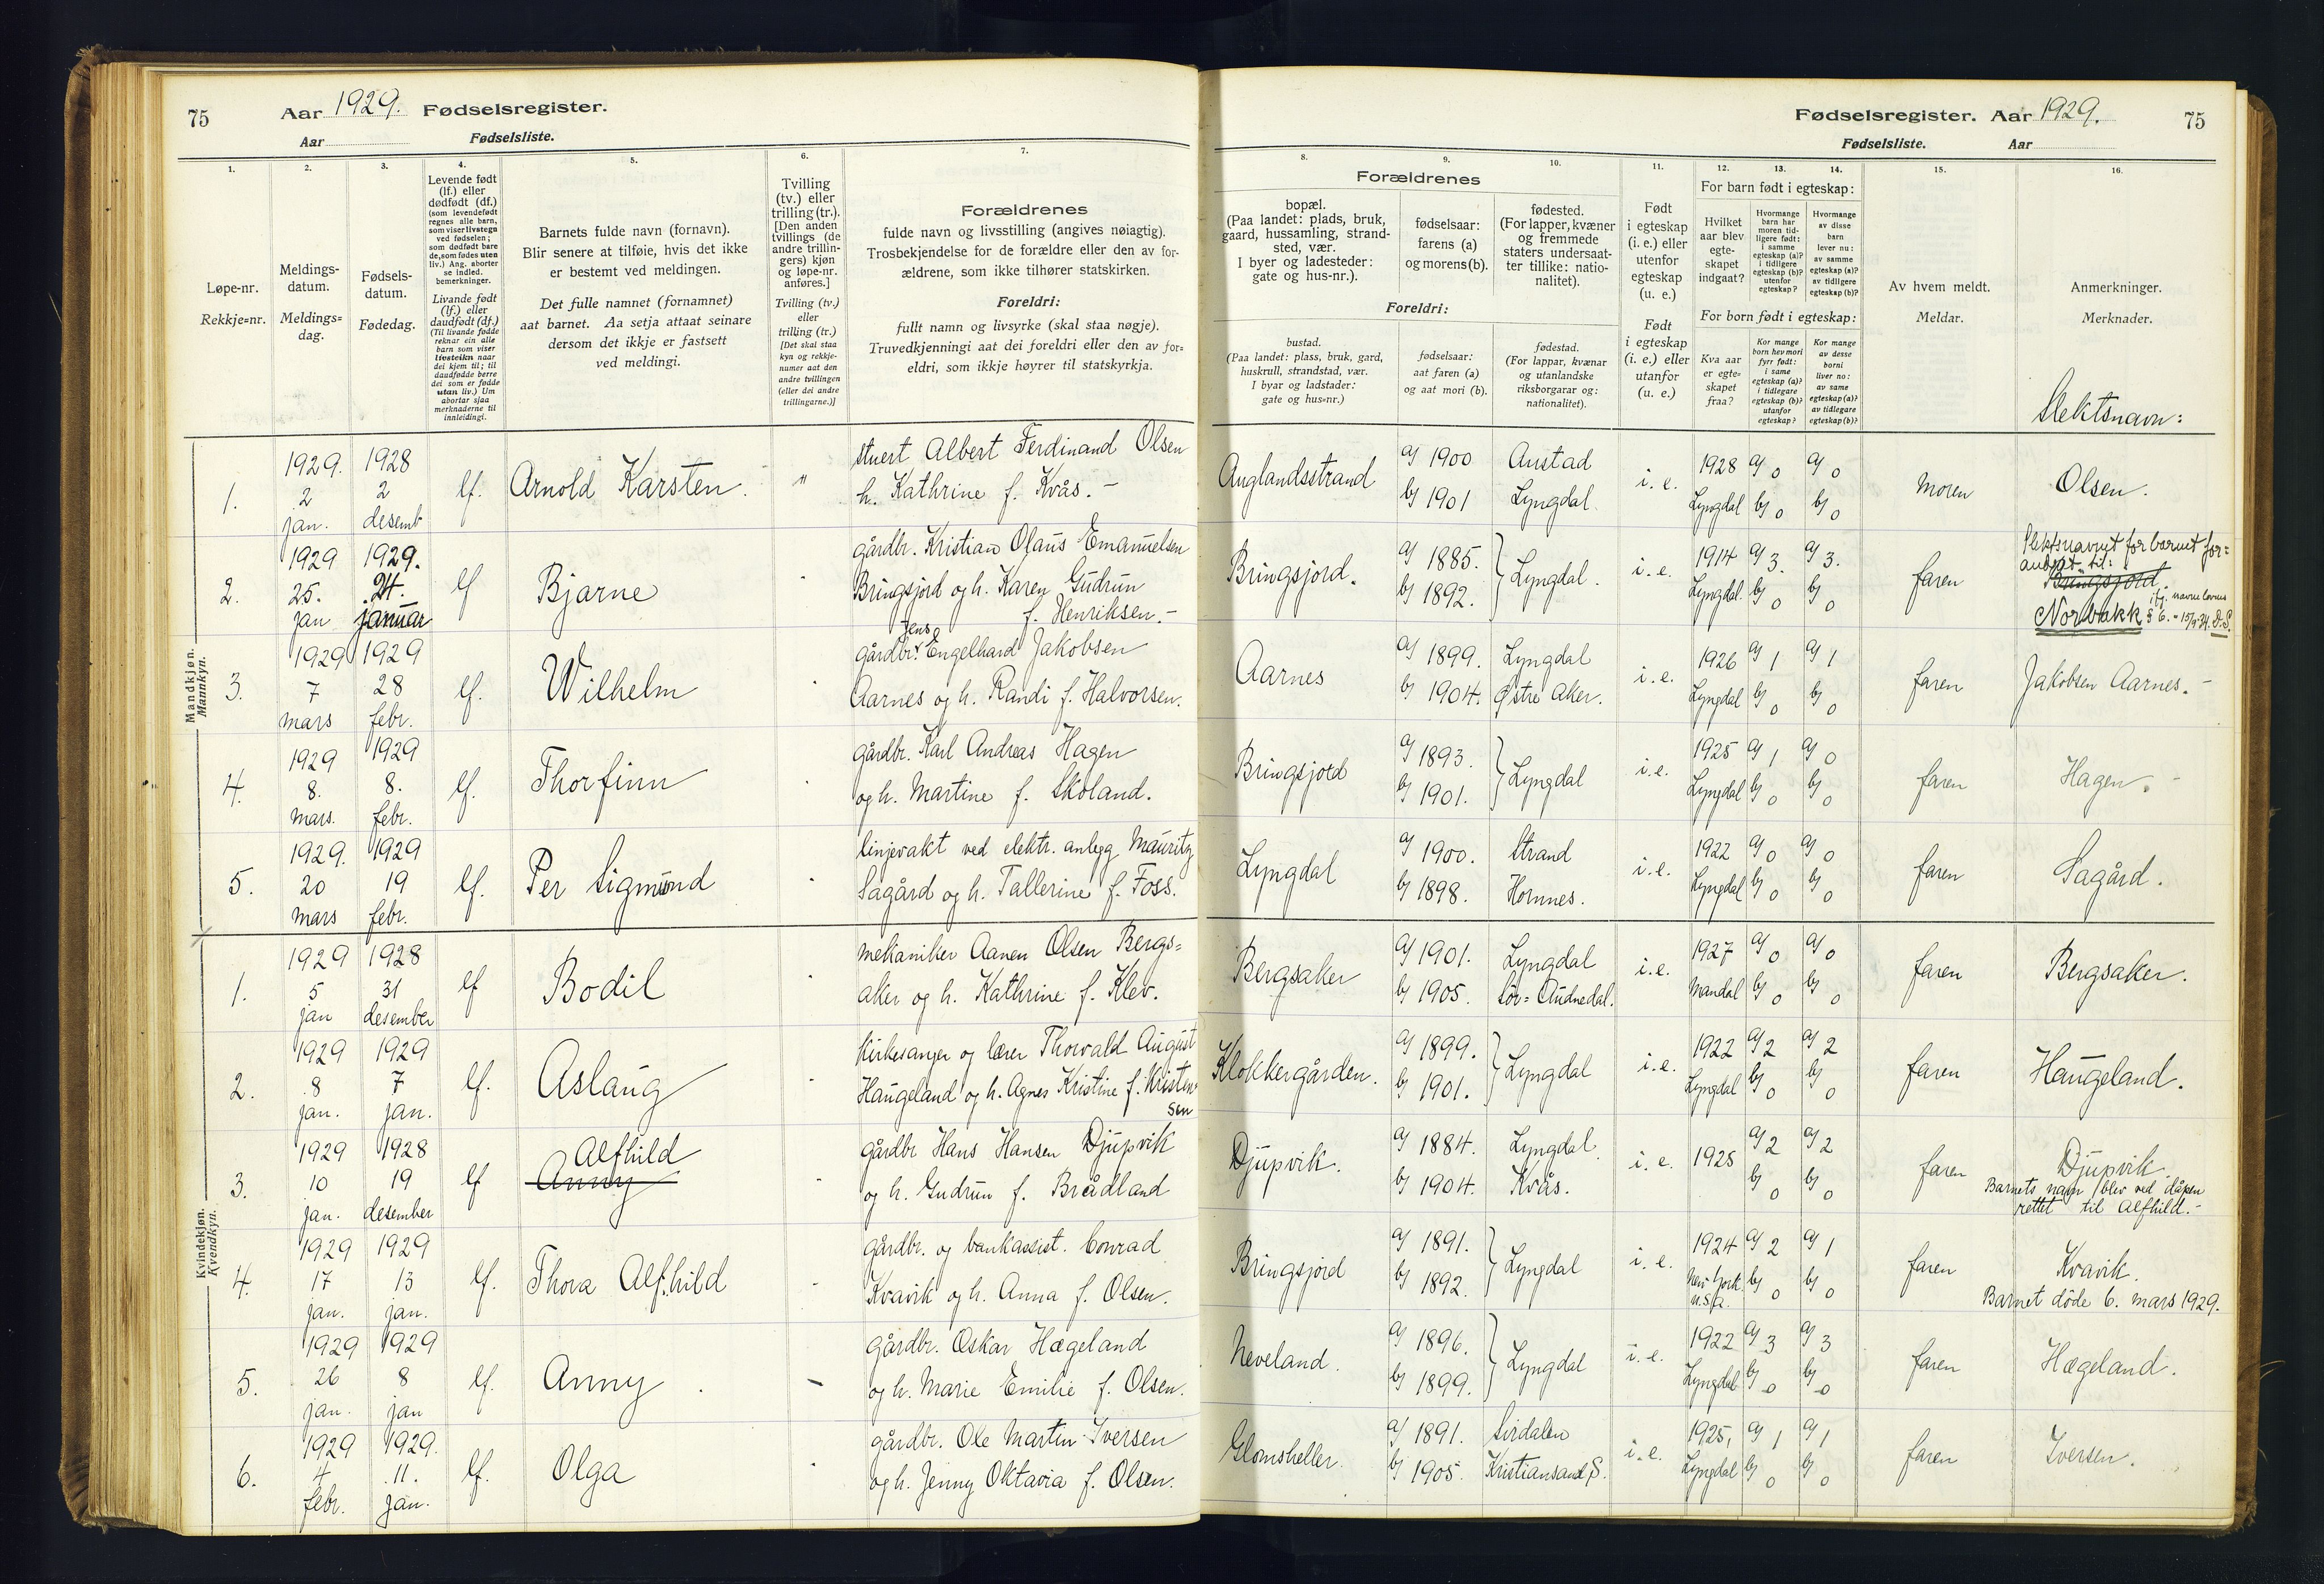 75 Aar 1929. Fødselsregister.
Aar Fødselsliste.
Fødselsregister. Aar 1929. 75
Fødselsliste. Aar
1.
2.
3.
4.
5.
6.
7.
Løpe-nr.
Rekkje=nr.
Meldings-
datum.
Meldings=
dag.
Fødsels-
datum.
Fødedag.
Levende født
(lf.) eller
dødfødt (df.)
(som levendefødt
regnes alle barn,
som viser livstegn
ved fødselen;
som dødfødt bare
de, som fødes uten
liv.) Ang. aborter
se indled.
bemerkninger.
Livande født
(lf.) eller
daudfødt (df.)
(Til livande fødde
reknar ein alle
barn som viser
livsteikn naar
dei kjem til; til
daudfødde berre
dei som er fødde
utan liv.) Um
abortar sjaa
merknaderne til
innleidingi.
Barnets fulde navn (fornavn).
Blir senere at tilføie, hvis det ikke
er bestemt ved meldingen.
Det fulle namnet (fornamnet)
aat barnet. Aa setja attaat seinare
dersom det ikkje er fastsett
ved meldingi.
Tvilling
(tv.) eller
trilling (tr.).
[Den anden
tvillings (de
andre trillin-
gers) kjøn
og løpe-nr.
anføres.]
Tvilling (tv.)
eller
trilling (tr.)
[Det skal staa
kyn og rekkje-
numer aat den
andre tvillingen
(eller dei andre
trillingarne.)]
Forældrenes
fulde navn og livsstilling (angives nøiagtig).
Trosbekjendelse for de forældre eller den av for-
ældrene, som ikke tilhører statskirken.
Foreldri:
fullt namn og livsyrke (skal staa nøgje).
Truvedkjenningi aat dei foreldri eller den av for=
eldri, som ikkje høyrer til statskyrkja.
8.
9.
10.
11.
12.
13.
14.
15.
16.
Forældrenes
bopæl.
(Paa landet: plads, bruk,
gaard, hussamling, strand-
sted, vær.
I byer og ladesteder:
gate og hus-nr.).
fødselsaar:
farens (a)
og morens (b).
fødested.
(For lapper, kvæner
og fremmede
staters undersaat-
ter tillike: natio-
nalitet).
Foreldri:
bustad.
(Paa landet: plass, bruk, gard,
huskrull, strandstad, vær.
I byar og ladstader:
gate og hus=nr.)
fødselsaar:
aat faren (a)
og aat mori (b).
fødestad.
(For lappar, kvænar
og utanlandske
riksborgarar og:
nationalitet).
Født
i egteskap
(i. e.) eller
utenfor
egteskap
(u. e.)
Født
i egteskap
(i. e.) eller
utanfor
(u. e.)
For barn født i egteskap:
Hvilket
aar blev
egte-
skapet
indgaat?
Hvormange
barn har
moren tid-
ligere født:
i samme
egteskap (a)?
i tidligere
egteskap (b)?
utenfor
egteskap?
Hvormange
av disse
barn
lever nu:
av samme
egteskap (a)?
av tidligere
egteskap (b)?
For born født i egteskap:
Kva aar
er egte=
skapet
fraa?
Kor mange
born hev mori
fyrr født:
i same
egteskap (a)?
i tidlegare
egteskap (b)?
utanfor
egteskap?
Kor mange
av desse
borni
liver no:
av same
egteskap (a)?
av tidlegare
egteskap (b)?
Av hvem meldt.
Meldar.
Anmerkninger.
Merknader.
Slektsnavn:
Mandkjøn.
Mannkyn.
1. 1929. 2 jan. 1928 2 desemb lf. Arnold Karsten. " stuert Albert Ferdinand Olsen
h. Kathrine f. Kvås. –
Anglandsstrand a) 1900 Austad i. e. 1928 a) 0 a) 0 moren Olsen.
b) 1901 Lyngdal. Lyngdal b) 0 b) 0
2. 1929 25. jan 1929. 24. januar lf Bjarne gårdbr. Kristian Olaus Emanuelsen
Bringsjord og h. Karen Gudrun
f. Henriksen. –
Bringsjord. a) 1885. Lyngdal. i. e. 1914 a) 3. a) 3. faren
b) 1892. Lyngdal. b) 0 b) 0
Slektsnavnet for barnet for=
andret til:
Bringsjord
ifj. navnelovens
Norbakk § 6. - 15/9 34. D.S.
3. 1929 7 mars 1929 28 febr. lf. Wilhelm Jens
gårdbr. Engelhard Jakobsen
Aarnes og h. Randi f. Halvorsen.
Aarnes a) 1899. Lyngdal i. e. 1926 a) 1 a) 1 faren Jakobsen Aarnes. –
b) 1904. Østre Aker. Lyngdal b) 0 b) 0
4. 1929 8. mars. 1929 8. febr. lf. Thorfinn gårdbr. Karl Andreas Hagen
og h. Martine f. Skoland.
Bringsjord a) 1893. Lyngdal i. e. 1925 a) 1 a) 0 faren Hagen.
b) 1901. Lyngdal b) 0 b) 0
5. 1929. 20 mars 1929 19 febr. lf. Per Sigmund linjevakt ved elektr. anlegg Mauritz
Sagård og h. Tallerine f. Foss.
Lyngdal a) 1900. Strand i. e. 1922 a) 0 a) 0 faren Sagård.
b) 1898. Hornnes. Lyngdal b) 0 b) 0
Kvindekjøn.
Kvendkyn.
1. 1929 5 jan 1928 31 desember lf Bodil mekaniker Aanen Olsen Bergs=
aker og h. Kathrine f. Klev.
Bergsaker a) 1901. Lyngdal i. e. 1927 a) 0 a) 0 faren Bergsaker.
b) 1905. Sør=Audnedal. Mandal b) 0 b) 0
2. 1929 8 jan. 1929 7 jan. lf. Aslaug Kirkesanger og lærer Thorvald August
Haugeland og h. Agnes Kristine f. Kristen
sen
Klokkergården. a) 1899. Lyngdal i. e. 1922 a) 2 a) 2 faren Haugeland.
b) 1901. Lyngdal b) 0 b) 0
3. 1929 10 jan. 1928 19 desember lf Alfhild
Anny
gårdbr Hans Hansen Djupvik
og h. Gudrun f. Brådland
Djupvik. a) 1884. Lyngdal. i. e. 1925 a) 2 a) 2 faren Djupvik.
b) 1904. Kvås. b) 0 b) 0
Barnets navn blev ved dåpen
rettet til Alfhild. –
4. 1929 17 jan. 1929 13 jan. lf. Thora Alfhild gårdbr. og bankassist. Conrad
Kvavik og h. Anna f. Olsen.
Bringsjord a) 1891. Lyngdal i. e. 1924 a) 2 a) 1 faren Kvavik.
b) 1892. New York. U.S.A. b) 0 b) 0
Barnet døde 6. mars 1929.
5. 1929 26 jan. 1929 8 jan lf. Anny. gårdbr. Oskar Hægeland
og h. Marie Emilie f. Olsen.
Neveland. a) 1896. Lyngdal i. e. 1922 a) 3 a) 3 faren Hægeland.
b) 1899. Lyngdal b) 0 b) 0
6. 1929 4 febr. 1929. 11. jan. lf. Olga gårdbr. Ole Martin Iversen
og h. Jenny Oktavia f. Olsen.
Glomsheller. a) 1891. Sirdalen i. e. 1925, a) 1 a) 1 faren Iversen.
b) 1905. Kristiansand S. Lyngdal b) 0 b) 0